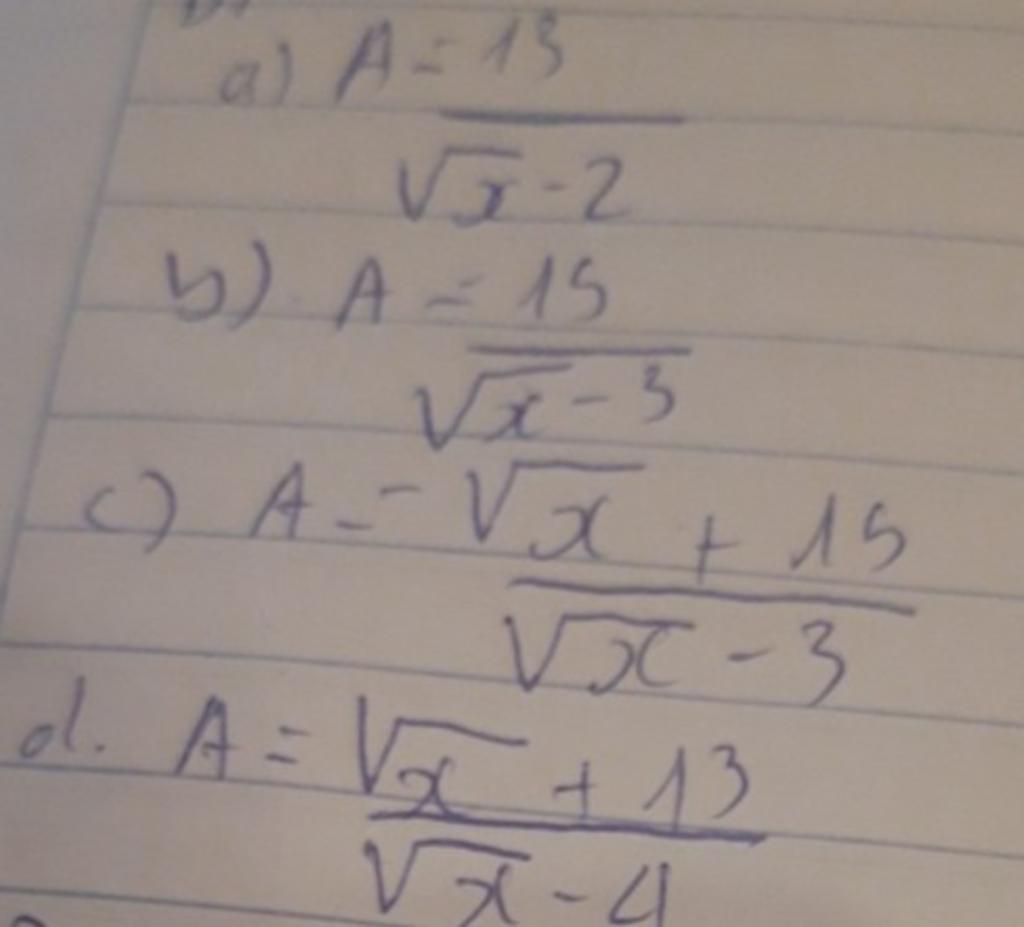 a) A = 13
√x - 2
b) A = 15
√x - 3
c) A = -√x + 15
√x - 3
d. A = √x + 13
√x - 4